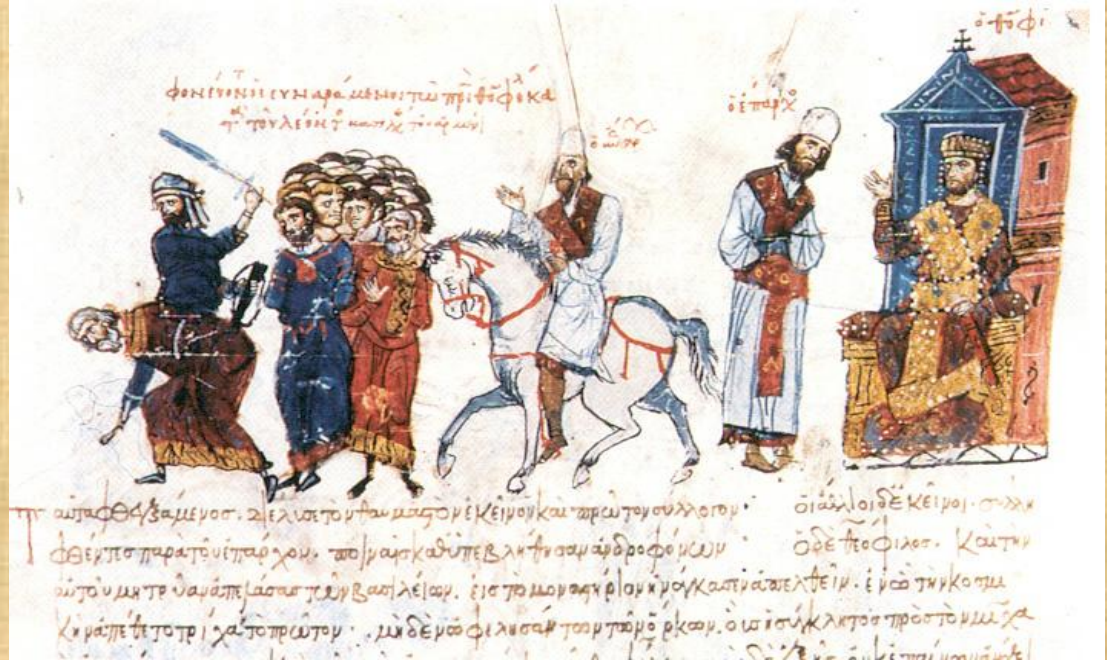 ὁ θεόφι
φονεύοντ οἱ συναράμενοι τῶ πρὶ θεοφ κα
τ τοῦ λέοντ
ὁ ἔπαρχο
αὐτὰ φθεγξάμενος. διέλυσε τὸν θαυμαστὸν ἐκεῖνον καὶ πρῶτον σύλλογον· οἱ ἄλλοι δὲ κεῖνοι· συλλη
φθέντες παρὰ τοῦ ἐπάρχου. ποιναῖς καθυπεβλήθησαν ἀνδροφόνων ὁ δὲ θεόφιλος. καὶ τὴν
αὐτοῦ μητρυιὰν ἀπελάσας τῶν βασιλείων. εἰς τὸ μοναστήριον ἠνάγκασεν ἀπελθεῖν. ἐν ὧ τὴν κοσμι
κὴν ἀπέθετο τρίχα τὸ πρῶτον· μηδὲν ὠφελησάντων τῶν ὅρκων. οἷς ἡ σύγκλητος πρὸς τὸν μιχα